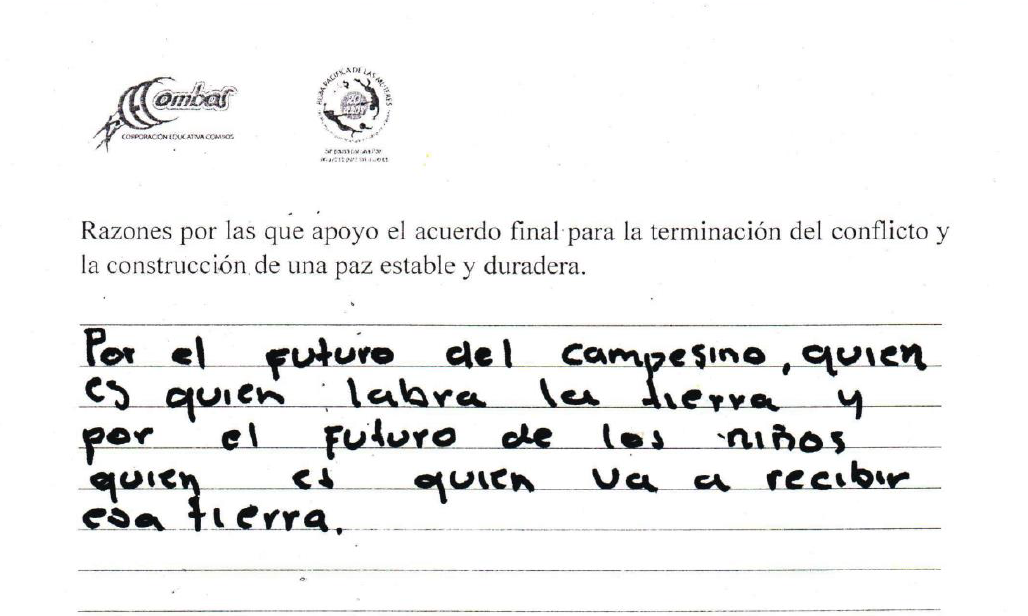 Combos
CORPORACIÓN EDUCATIVA COMBOS
RUTA PACIFICA DE LAS MUJERES
Razones por las que apoyo el acuerdo final para la terminación del conflicto y
la construcción de una paz estable y duradera.
Por el futuro del campesino, quien
es quien labra la tierra y
por el futuro de los niños
quien es quien va a recibir
esa tierra.